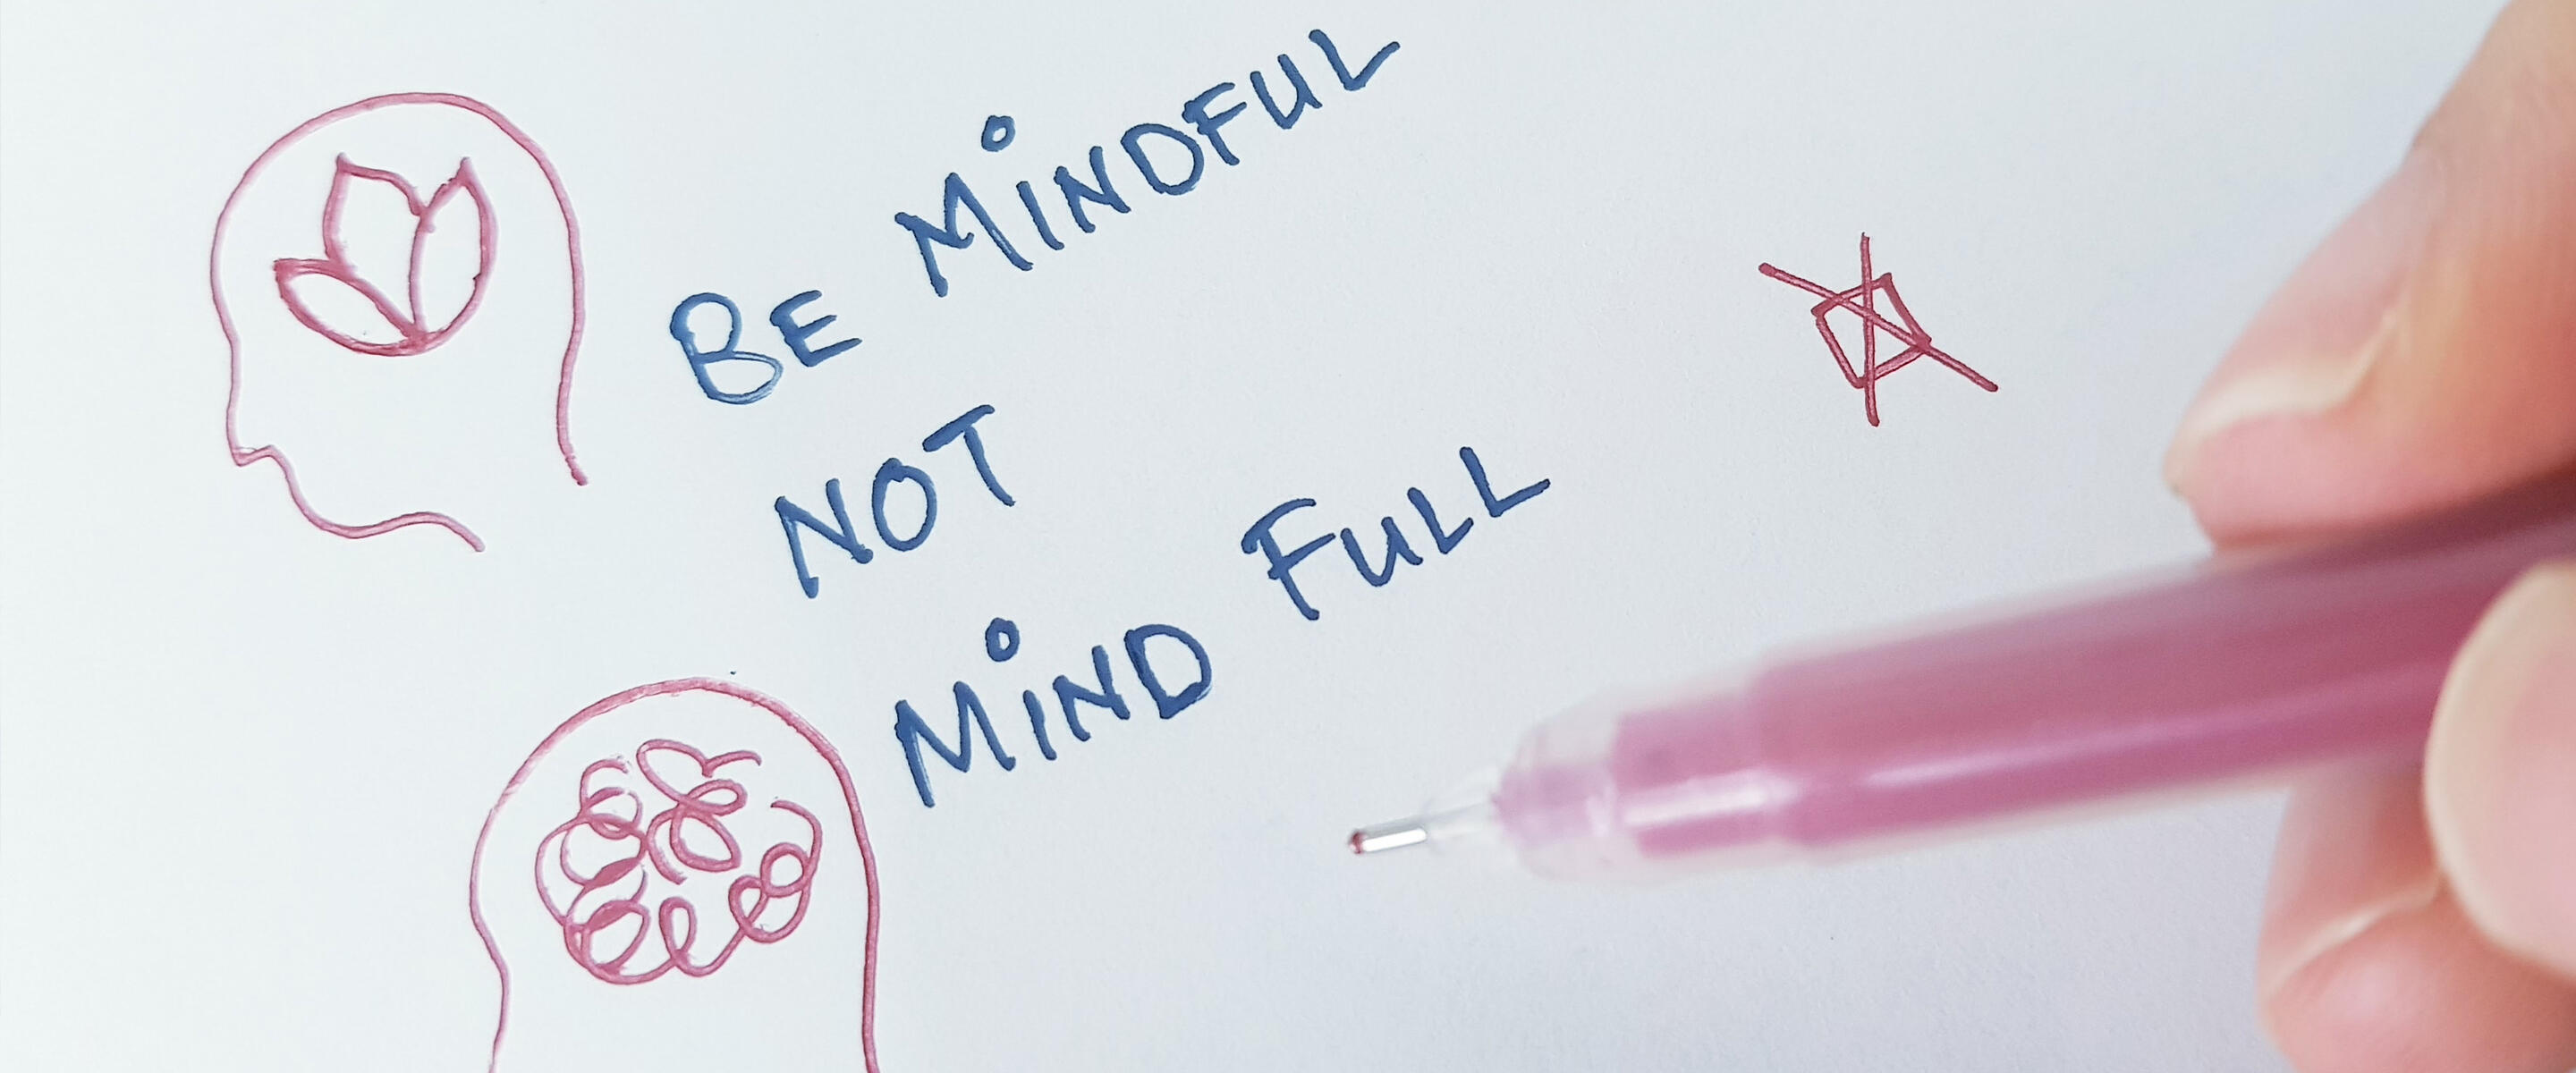 Be MiNDFUL
NOT
MiND FULL